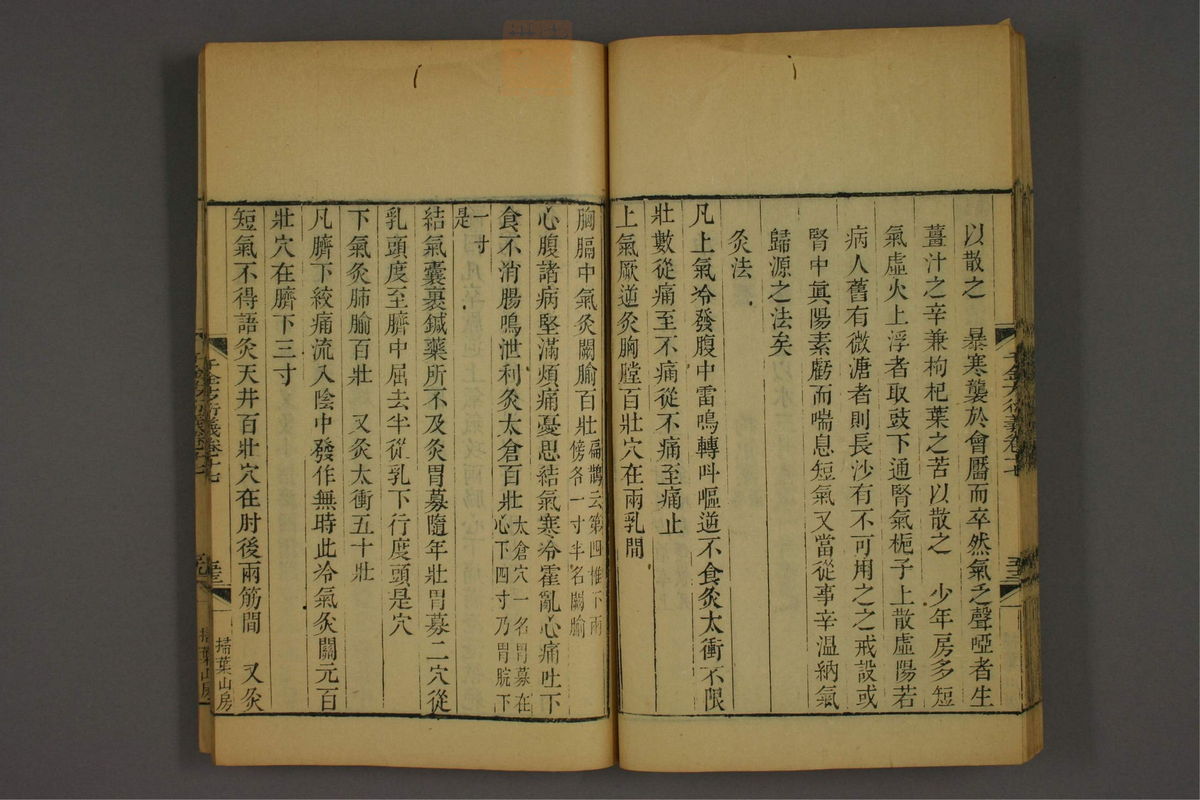 以散之 暴寒襲於會厭而卒然氣乏聲啞者生
薑汁之辛兼枸杞葉之苦以散之 少年房多短
氣虛火上浮者取豉下通腎氣梔子上散虛陽若
病人舊有微溏者則長沙有不可用之之戒設或
腎中真陽素虧而喘息短氣又當從事辛溫納氣
歸源之法矣
灸法
凡上氣冷發腹中雷鳴轉呌嘔逆不食灸太衝不限
壯數從痛至不痛從不痛至痛止
上氣厥逆灸胸膛百壯穴在兩乳間
胸膈中氣灸闕腧百壯扁鵲云第四椎下兩傍各一寸半名闕腧
心腹諸病堅滿煩痛憂思結氣寒冷霍亂心痛吐下
食不消腸鳴泄利灸太倉百壯太倉穴一名胃募在心下四寸乃胃脘下
一寸是
結氣囊裹鍼藥所不及灸胃募隨年壯胃募二穴從
乳頭度至臍中屈去半從乳下行度頭是穴
下氣灸肺腧百壯 又灸太衝五十壯
凡臍下絞痛流入陰中發作無時此冷氣灸關元百
壯穴在臍下三寸
短氣不得語灸天井百壯穴在肘後兩筋間 又灸
千金方衍義卷十七
掃葉山房